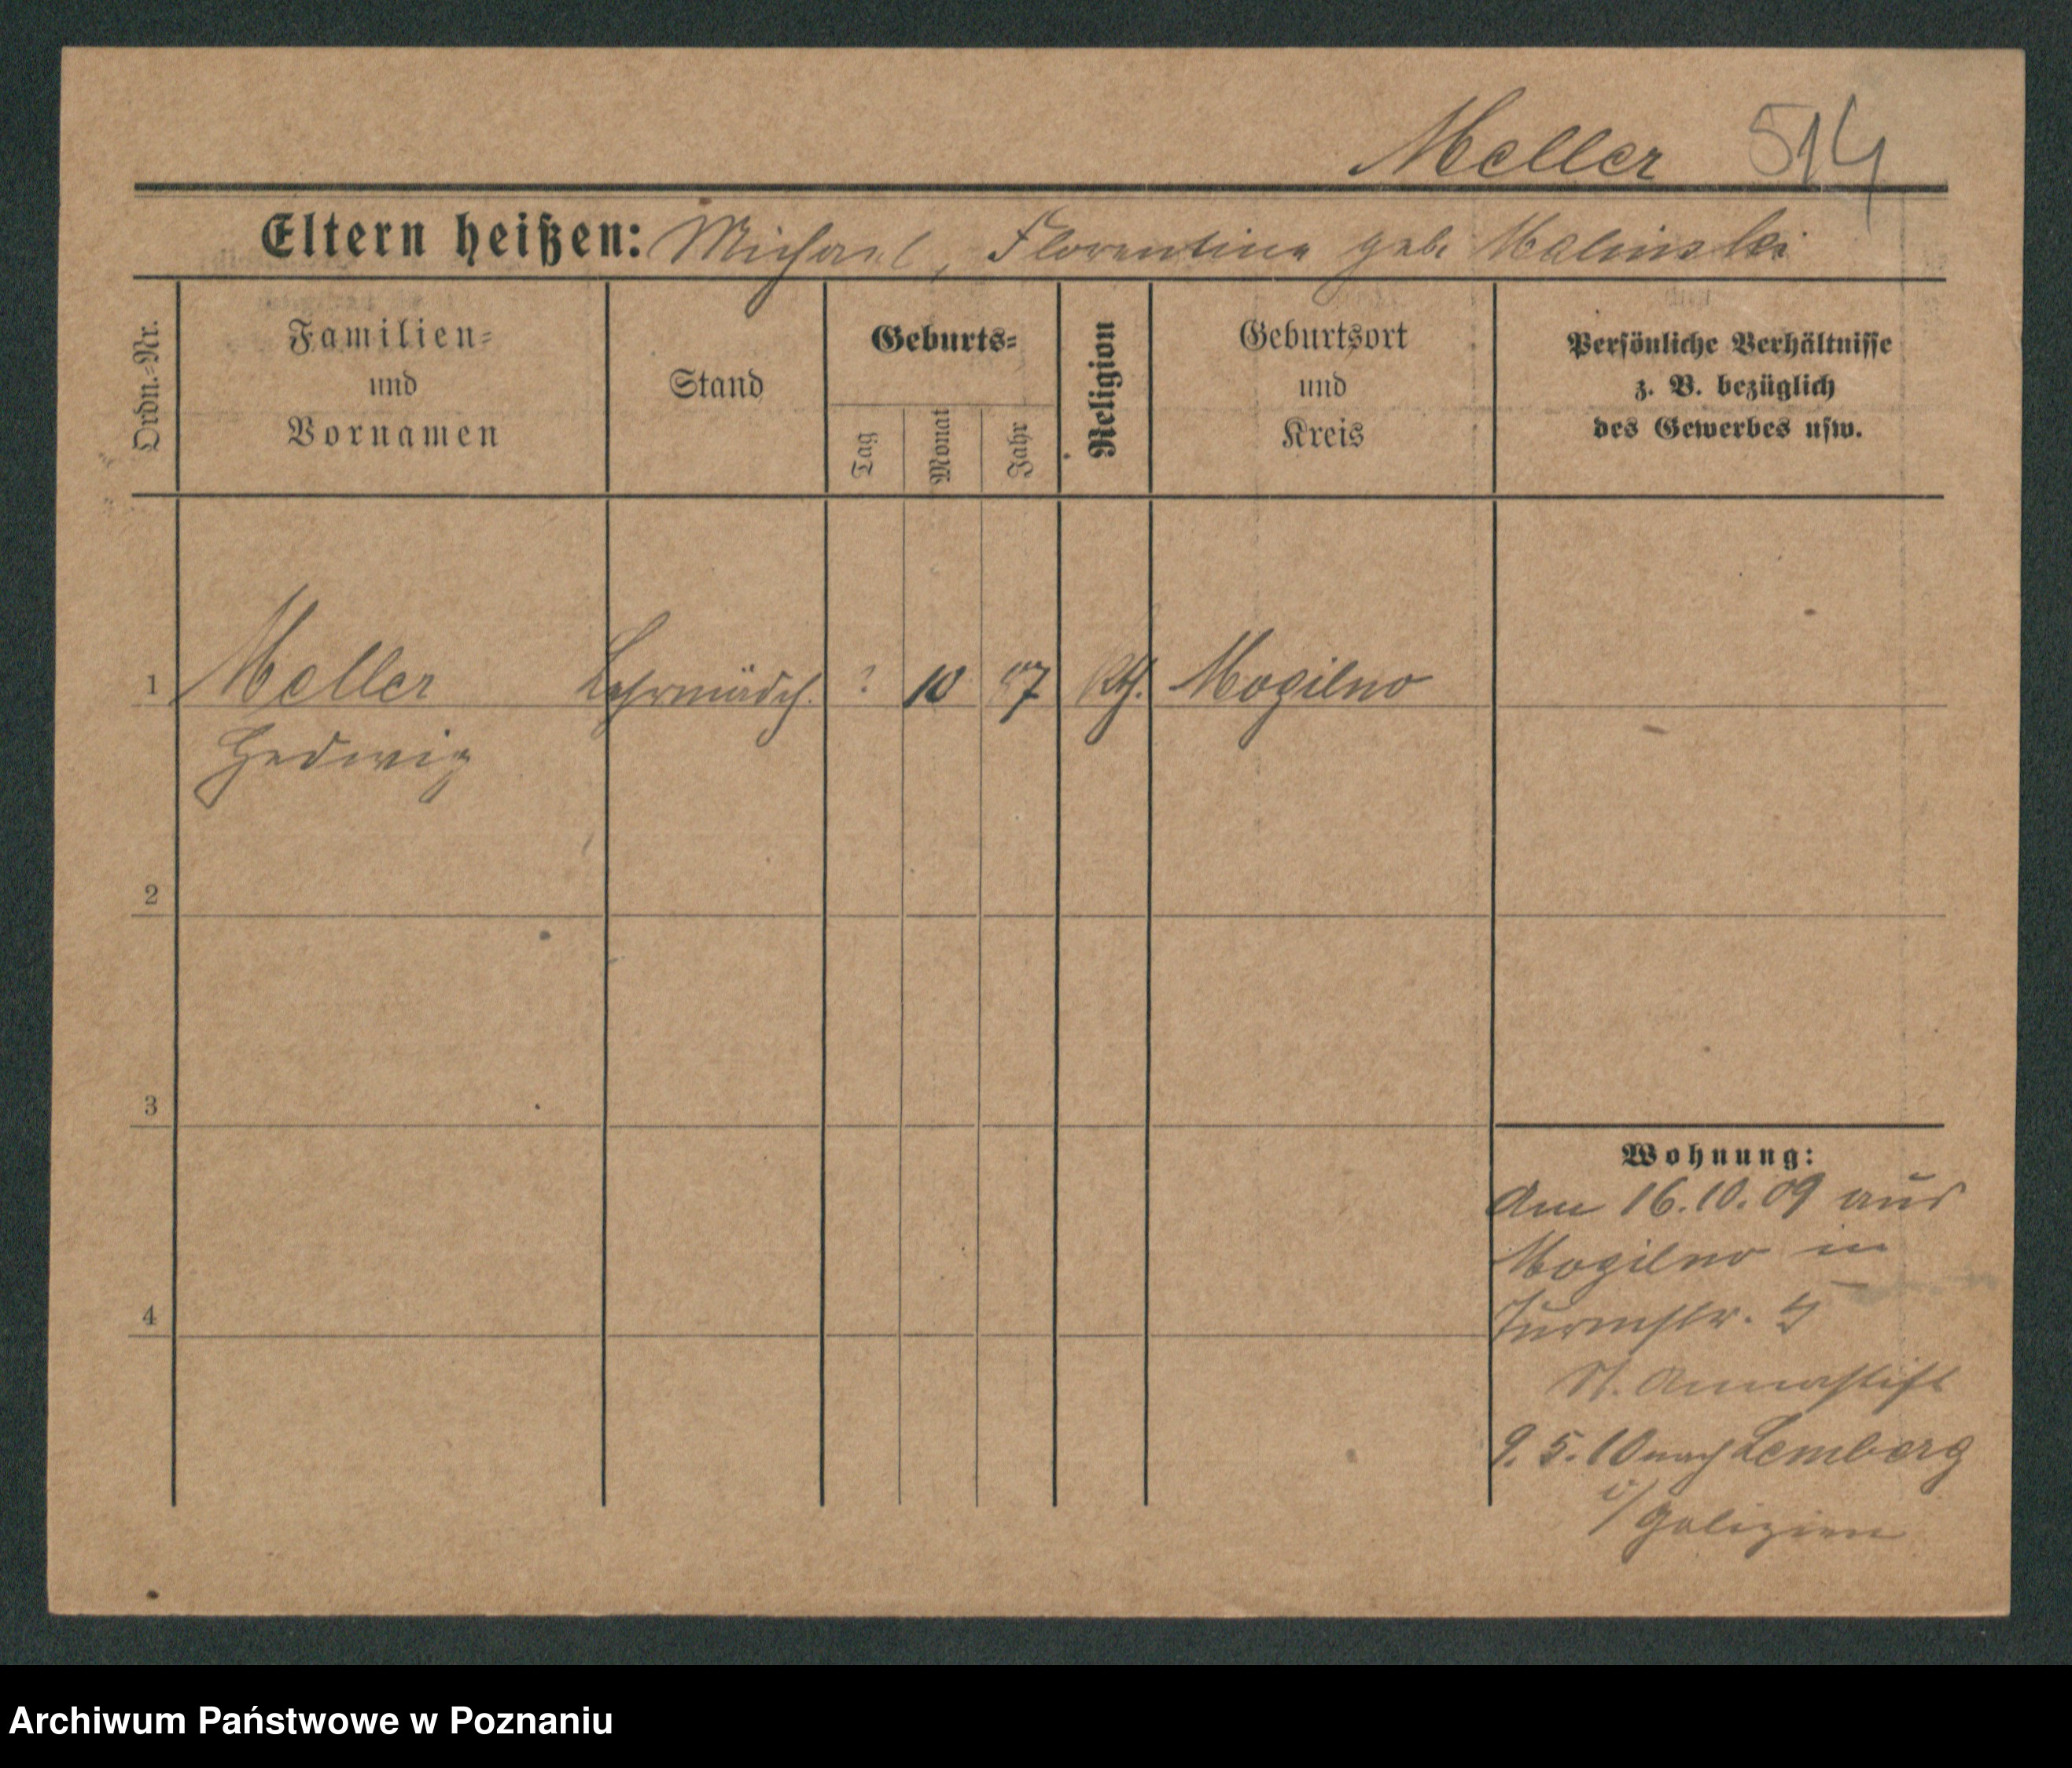 Meller 514
Eltern heißen: Michael, Florentine geb. Malinski
Ordn.=Nr.
Familien=
und
Vornamen
Stand
Geburts=
Tag
Monat
Jahr
Religion
Geburtsort
und
Kreis
Persönliche Verhältnisse
z. B. bezüglich
des Gewerbes usw.
1 Meller Lehrmädch. ? 10 87 Kth. Mogilno
Hedwig
2
3
4
Wohnung:
Am 16.10.09 aus
Mogilno in
Turmstr. 4
St. Annastift
9.5.10 nach Lemberg
i/Galizien
Archiwum Państwowe w Poznaniu